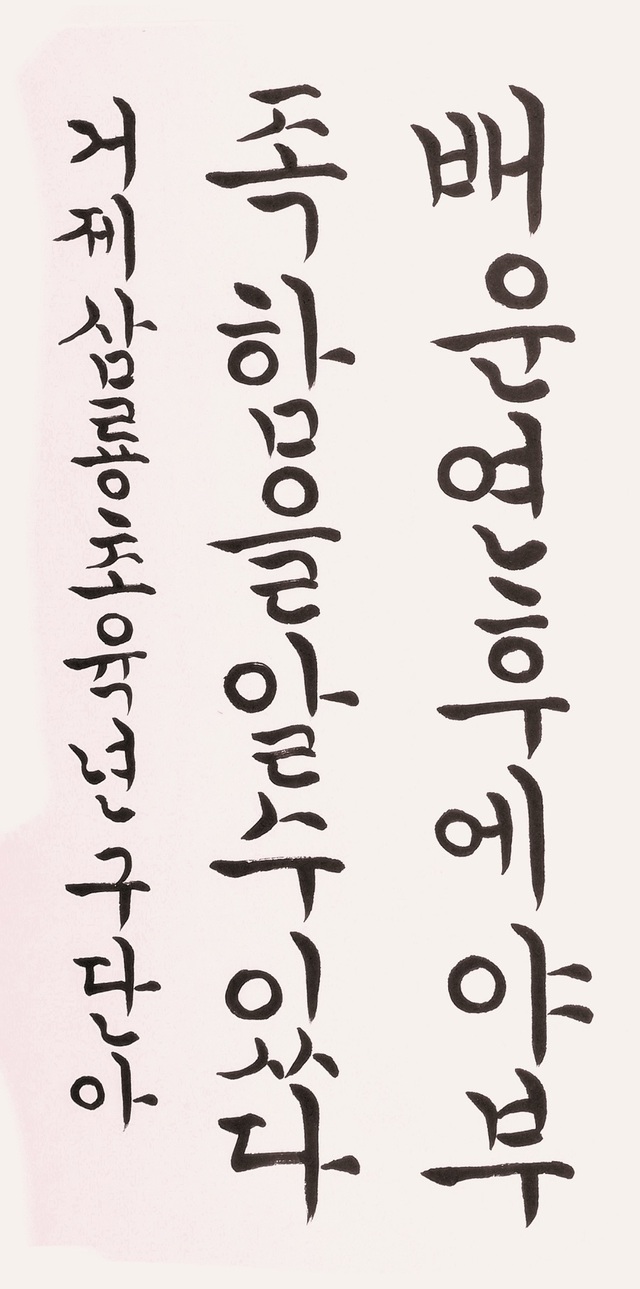 배운연후에야부
족함을알수있다
거제삼룡초육년구단아